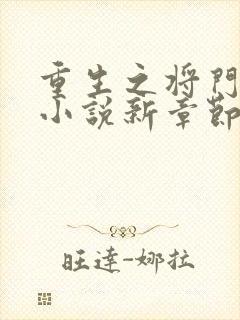 重生之将門
小説新章節
旺達-娜拉